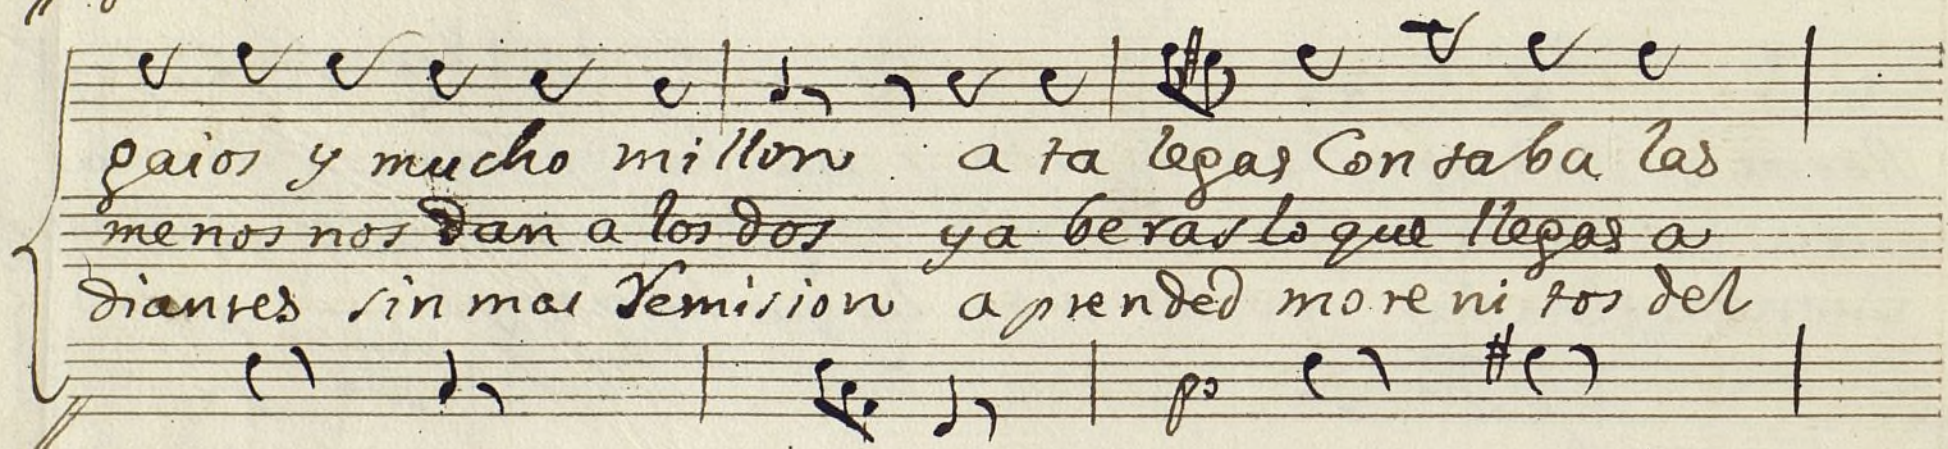 gaios y mucho millon a ta legas Contaba las
menos nos dan a los dos ya beras lo que llegas a
diantres sin mas Remision aprended morenitos del
po